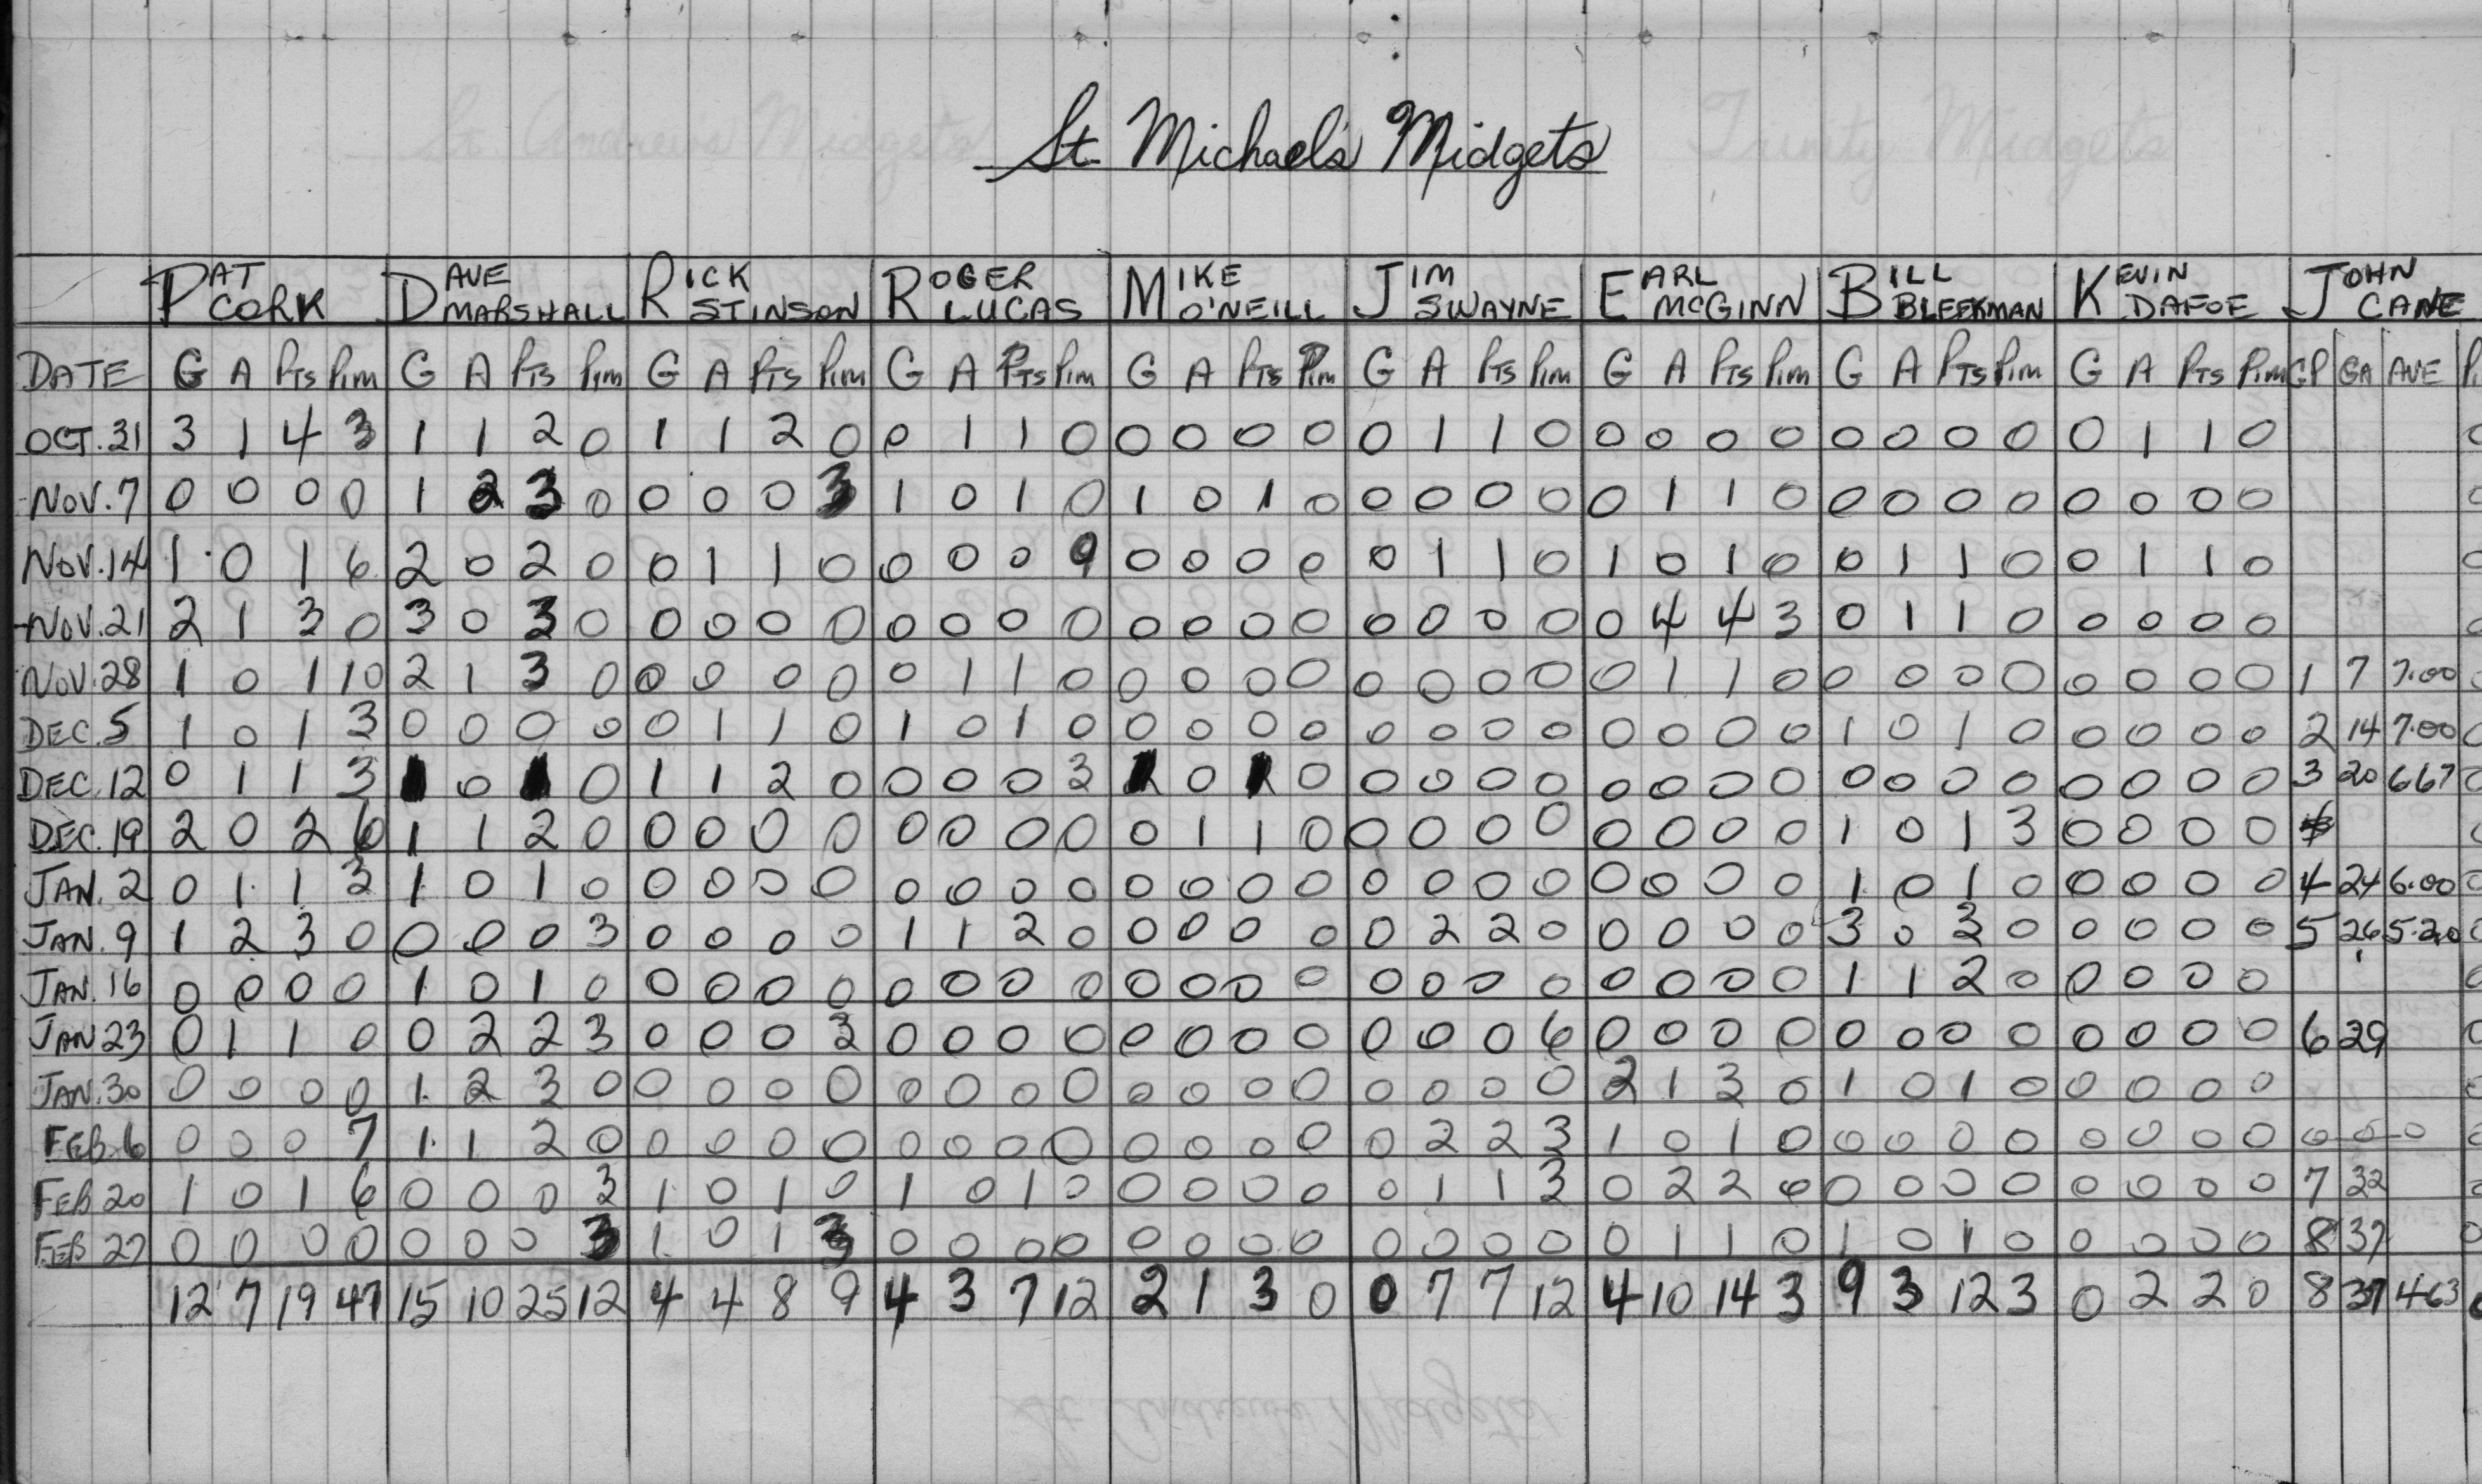 St. Michael's Midgets
PAT CORK DAVE MARSHALL RICK STINSON ROGER LUCAS MIKE O'NEILL JIM SWAYNE EARL MCGINN BILL BLEEKMAN KEVIN DAFOE JOHN CANE
DATE G A PTS PIM G A PTS PIM G A PTS PIM G A PTS PIM G A PTS PIM G A PTS PIM G A PTS PIM G A PTS PIM G A PTS PIM GP GA AVE
OCT. 31 3 1 4 3 1 1 2 0 1 1 2 0 0 1 1 0 0 0 0 0 0 1 1 0 0 0 0 0 0 0 0 0 0 1 1 0
NOV. 7 0 0 0 0 1 2 3 0 0 0 0 3 1 0 1 0 1 0 1 0 0 0 0 0 0 1 1 0 0 0 0 0 0 0 0 0
NOV. 14 1 0 1 6 2 0 2 0 0 1 1 0 0 0 0 9 0 0 0 0 0 1 1 0 1 0 1 0 0 1 1 0 0 1 1 0
NOV. 21 2 1 3 0 3 0 3 0 0 0 0 0 0 0 0 0 0 0 0 0 0 0 0 0 0 4 4 3 0 1 1 0 0 0 0 0
NOV. 28 1 0 1 10 2 1 3 0 0 0 0 0 0 1 1 0 0 0 0 0 0 0 0 0 0 1 1 0 0 0 0 0 0 0 0 0 1 7 7.00
DEC. 5 1 0 1 3 0 0 0 0 0 1 1 0 1 0 1 0 0 0 0 0 0 0 0 0 0 0 0 0 1 0 1 0 0 0 0 0 2 14 7.00
DEC. 12 0 1 1 3 0 0 1 1 2 0 0 0 0 3 1 0 1 0 0 0 0 0 0 0 0 0 0 0 0 0 0 0 0 0 3 20 667
DEC. 19 2 0 2 6 1 1 2 0 0 0 0 0 0 0 0 0 0 1 1 0 0 0 0 0 0 0 0 0 1 0 1 3 0 0 0 0
JAN. 2 0 1 1 3 1 0 1 0 0 0 0 0 0 0 0 0 0 0 0 0 0 0 0 0 0 0 0 0 1 0 1 0 0 0 0 0 4 24 6.00
JAN. 9 1 2 3 0 0 0 0 3 0 0 0 0 1 1 2 0 0 0 0 0 0 2 2 0 0 0 0 0 3 0 3 0 0 0 0 0 5 26 5.20
JAN. 16 0 0 0 0 1 0 1 0 0 0 0 0 0 0 0 0 0 0 0 0 0 0 0 0 0 0 0 0 1 1 2 0 0 0 0 0
JAN 23 0 1 1 0 0 2 2 3 0 0 0 3 0 0 0 0 0 0 0 0 0 0 0 6 0 0 0 0 0 0 0 0 0 0 0 0 6 29
JAN. 30 0 0 0 0 1 2 3 0 0 0 0 0 0 0 0 0 0 0 0 0 0 0 0 0 2 1 3 0 1 0 1 0 0 0 0 0
FEB. 6 0 0 0 7 1 1 2 0 0 0 0 0 0 0 0 0 0 0 0 0 0 2 2 3 1 0 1 0 0 0 0 0 0 0 0 0 0 0 0
FEB 20 1 0 1 6 0 0 0 3 1 0 1 0 1 0 1 0 0 0 0 0 0 1 1 3 0 2 2 0 0 0 0 0 0 0 0 0 7 32
FEB 27 0 0 0 0 0 0 0 3 1 0 1 3 0 0 0 0 0 0 0 0 0 0 0 0 0 1 1 0 1 0 1 0 0 0 0 0 8 37
12 7 19 47 15 10 25 12 4 4 8 9 4 3 7 12 2 1 3 0 0 7 7 12 4 10 14 3 9 3 12 3 0 2 2 0 8 37 463